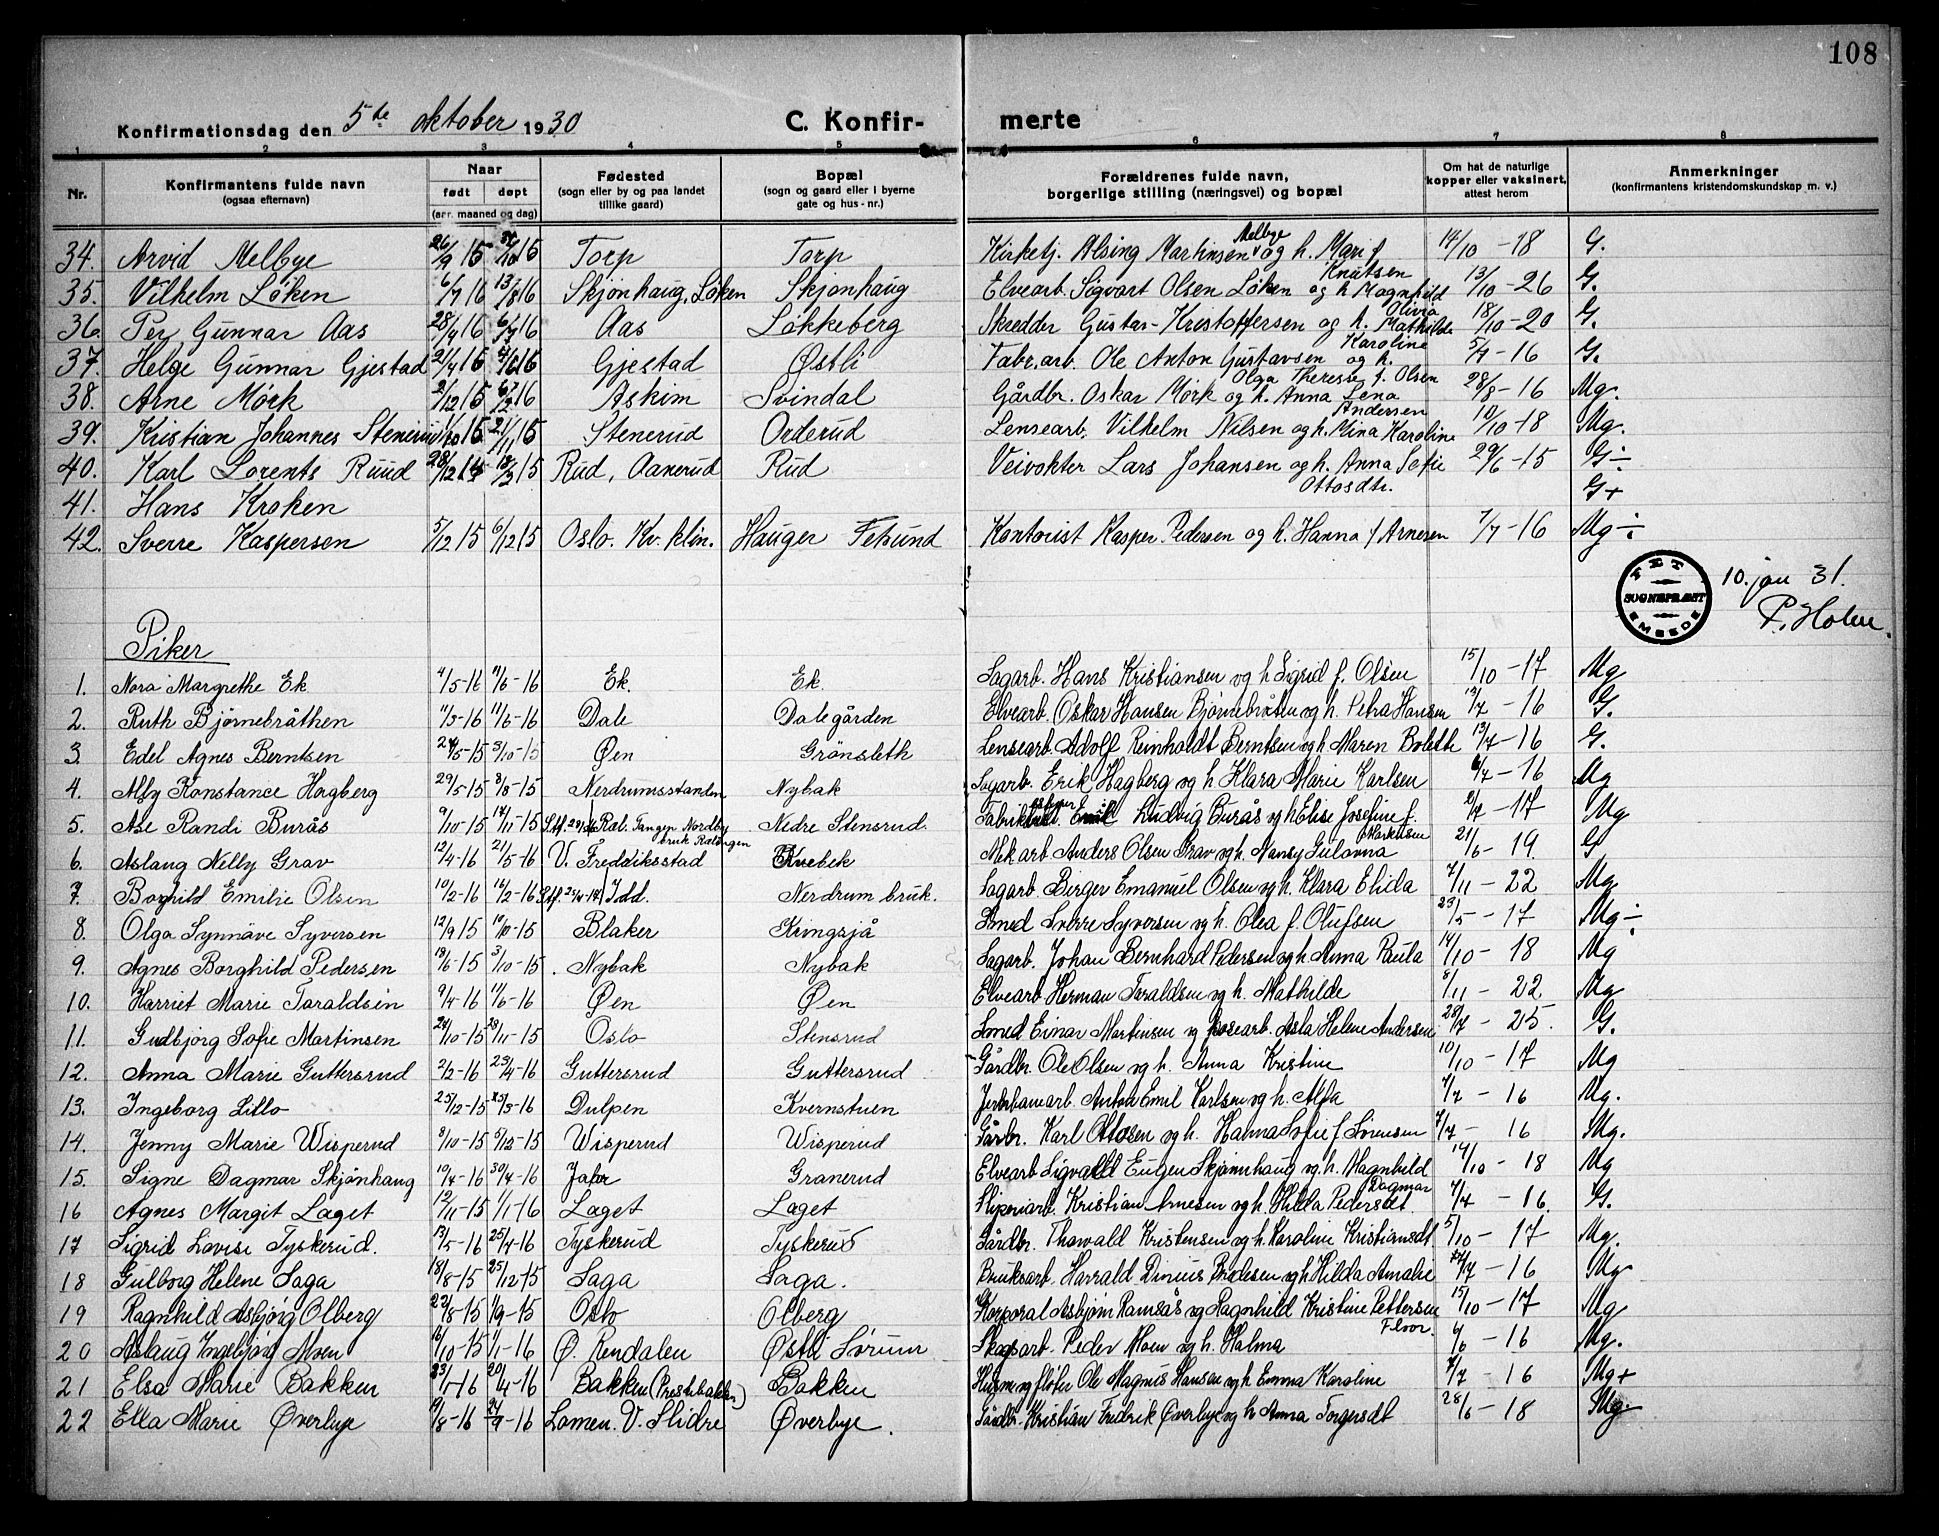 108
Konfirmationsdag den 5te oktober 1930 C. Konfir- merte
1 2 3 4 5 6 7 8
Nr. Konfirmantens fulde navn (ogsaa efternavn) Naar født døpt (arr. maaned og dag) Fødested (sogn eller by og paa landet tillike gaard) Bopæl (sogn og gaard eller i byerne gate og hus-nr.) Forældrenes fulde navn, borgerlige stilling (næringsvei) og bopæl Om hat de naturlige kopper eller vaksinert, attest herom Anmerkninger (konfirmantens kristendomskundskap m. v.)
34. Arvid Melbye 26/9 15 31/10 15 Torp Torp Kirketj. Alsing Martinsen Melbye og h. Mari f 14/10 - 18 G.
35. Vilhelm Løken 6/7 16 13/8 16 Skjønhaug, Løken Skjønhaug Elvearb. Sigvart Olsen Løken og h Magnhild Knutsen 13/10 - 26 G.
36. Per Gunnar Aas 28/4 16 16 Aas Løkkeberg Skredder Gustav Kristoffersen og h. Olivia Mathilde 18/10 - 20 G.
37. Helge Gunnar Gjestad 2/4 16 4/6 16 Gjestad Østli Fabr.arb. Ole Anton Gustavsen og h. Karoline 5/7 - 16 G.
38. Arne Mørk 2/12 15 6/2 16 Askim Svindal Gårdbr. Oskar Mørk og h. Anna Lena Olga Therese f. Olsen 28/8 - 16 Mg.
39. Kristian Johannes Stenerud 1/10 15 21/11 15 Stenerud Orderud Lensearb. Vilhelm Nilsen og h. Mina Karoline Andersen 10/10 - 18 Mg.
40. Karl Lorents Ruud 28/12 14 18/3 15 Rud, Aanerud Rud Veivokter Lars Johansen og h. Anna Sofie Ottosdtr. 29/6 - 15 G÷
41. Hans Kroken G+
42. Sverre Kaspersen 5/12 15 6/12 15 Oslo. Kv. klin. Hauger Fetsund Kontorist Kasper Pedersen og h. Hanna f Arnesen 7/7 - 16 Mg÷
FET SOGNEPRÆST EMBEDE 10. jan 31.
P. Holm.
Piker
1. Nora Margrethe Ek 4/5-16 11/6-16 Ek. Ek. Sagarb. Hans Kristiansen og h Sigrid f. Olsen 15/10 - 17 Mg
2. Ruth Bjørnebråthen 11/3-16 11/6-16 Dale Dalegården Elvearb. Oskar Hansen Bjørnebråten og h. Petra Hansen 13/7 - 16 G.
3. Edel Agnes Berntsen 24/5-15 3/10-15 Øen Grønsleth Lensearb. Adolf Reinholdt Berntsen og h Maren Boleth 13/7 - 16 G.
4. Alfy Konstance Hagberg 29/5-15 8/8-15 Nerdrumsstranden Nybak Sagarb. Erik Hagberg og h Klara Marie Karlsen 6/7 - 16 Mg
5. Ase Randi Burås 9/10-15 14/11-15 Ral. Tangen Nordby bruk Rælingen Nedre Stensrud. Ludvig Burås og h Elise Josefine f. Markusen 2/7 - 17 Mg
6. Aslaug Nelly Grav 12/4-16 21/5-16 V. Fredriksstad Kvebek Mek arb Anders Olsen Grav og h. Nansy Gulovna 21/6 - 19. G
7. Borghild Emilie Olsen 10/2-16 16/2-16 Idd. Nerdrum bruk. Sagarb. Birger Emanuel Olsen og h. Klara Elida 7/11 - 22 Mg
8. Olga Synnöve Syversen 12/9 15 10/10-15 Blaker Kringsjå Smed Sverre Syversen og h. Olea f. Olufsen 23/5 - 17 Mg÷
9. Agnes Borghild Pedersen 18/6-15 3/10-15 Nybak Nybak Sagarb. Johan Bernhard Pedersen og h Anna Paula 14/10 - 18 Mg
10. Harriet Marie Taraldsen 9/4-16 11/6-16 Øen Øen Elvearb Herman Taraldsen og h. Mathilde 8/11 - 22 Mg
11. Gudbjørg Sofie Martinsen 24/10-15 28/11-15 Oslo Stensrud Smed Einar Martinsen og Asta Helene Andersen 28/7 - 25. G.
12. Anna Marie Guttersrud 2/2-16 23/4-16 Guttersrud Guttersrud Gårdbr. Ole Olsen og h. Anna Kristine 10/10 - 17 Mg
13. Ingeborg Lillo 25/12-15 25/3-16 Dulpen Kvernstuen Jernbanearb. Anton Emil Karlsen og h. Alfa 4/7 - 16 Mg.
14. Jenny Marie Wisperud 8/10-15 5/12-15 Wisperud Wisperud Gårbr. Karl Ottosen og h. Halma Sofie f. Sørensen 7/7 - 16 Mg.
15. Signe Dagmar Skjønhaug 19/4-16 30/4-16 Jahr Granerud Elvearb Sigvald Eugen Skjønnhaug og h. Magnhild Dagmar 14/10 - 18 Mg
16 Agnes Margit Laget 12/11-15 1/1-16 Laget Laget Sliperiarb. Kristian Arnesen og h Hilda Pedersdt 7/7 - 16. G.
17 Sigrid Lovise Tyskerud. 13/5-16 25/4-16 Tyskerud Tyskerud Gårdbr. Thorvald Kristensen og h. Karoline Kristiansdt. 5/10 - 17 Mg.
18 Gulborg Helene Saga 18/8-15 25/12-15 Saga Saga. Bruksarb. Harrald Dinius Bredesen og h Hilda Amalie 14/7 - 16 Mg
19 Ragnhild Asbjørg Olberg 22/8-15 1/9-15 Oslo Olberg Korporal Asbjørn Ramsås og Ragnhild Kristine Pettersen Floor. 15/10 - 17 Mg
20 Aslaug Ingebjørg Moen 16/10-15 1/1-16 Ø. Rendalen Østli Sørum Skogsarb. Peder Moen og h. Halma 6/6 - 16 Mg.
21 Elsa Marie Bakken 23/1-16 20/4-16 Bakken (Prestbakken) Bakken Husm. og fløter Ole Magnus Hansen og h Emma Karoline 7/7 - 16 Mg+
22 Ella Marie Øverbye 9/8-16 24/9-16 Lomen. V. Slidre Øverbye. Gårdbr. Kristian Fredrik Øverbye og h Anna Torgersdt 28/6 - 18 Mg.